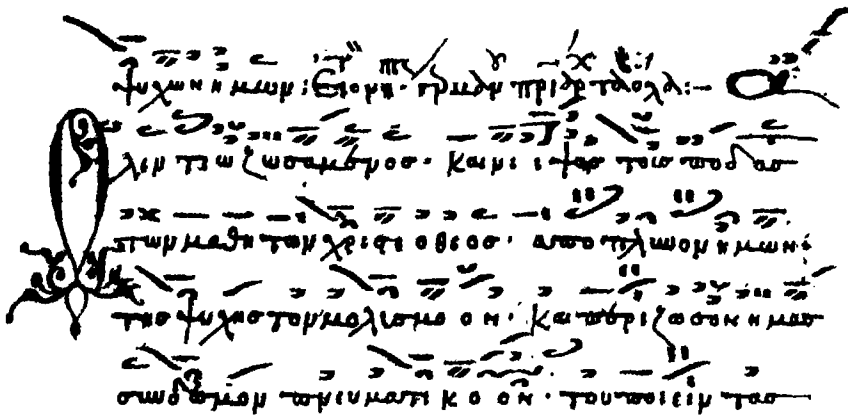 ψυχων ημων:
Ολεντιω ζωσαμενος· και νι ι ψας τους ποδ ας
των μαθητων χριστε ο θεος· αποπλυνον ημων:
της ψυχης τον μολισμο ον· και περιζωσον ημας
συνδεσμον πνευματικο ον· του ποιειν τας